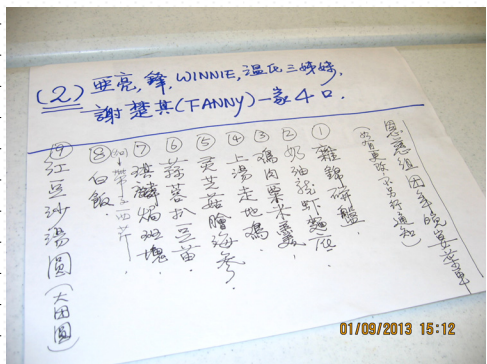 (2) 亜亮, 鋒, WINNIE, 温氏三姊妹,
謝楚其(FANNY)一家4口.
恩慈組團年晚宴菜單
(如有更改,不另行通知)
① 雜錦拼盤.
② 奶油龍虾麵底.
③ 鷄肉粟米羹.
④ 上湯走地鷄.
⑤ 灵芝菇膾海参.
⑥ 蒜蓉扒豆苗.
⑦ 琪麟焗斑塊
⑧ 白飯.
⑨ 紅豆沙湯圓 (大团圓)
01/09/2013 15:12